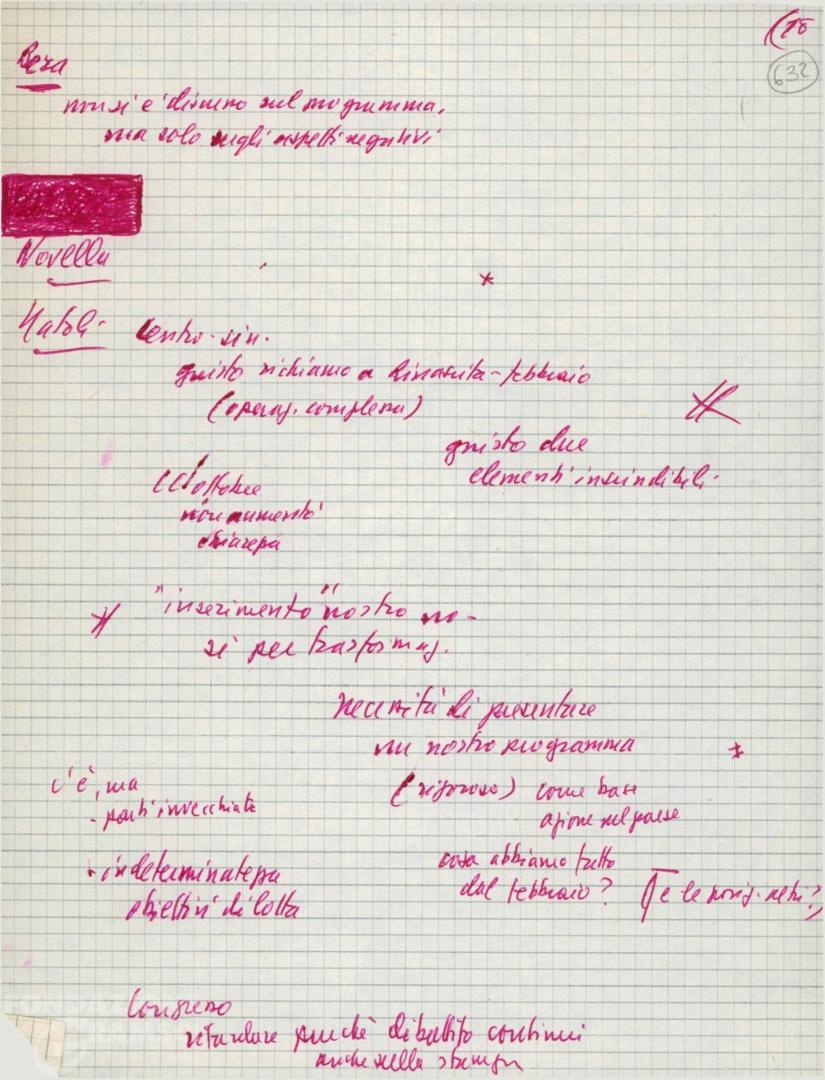 (18
632
Bera
non si è discusso sul programma,
ma solo sugli aspetti negativi
Novella
*
Natoli
Centro-sin.
giusto richiamo a Rinascita-febbraio
(operaz. complessa)
giusto due
elementi inscindibili.
CC ottobre
non aumentò
chiarezza
"inserimento" nostro no-
sì per trasformaz.
necessità di presentare
un nostro programma
c'è, ma
- parti invecchiate
(rigoroso) come base
azione nel paese
- indeterminatezza
obiettivi di lotta
cosa abbiamo fatto
dal febbraio?
e le
Congresso
ritardare purché dibattito continui
anche sulla stampa